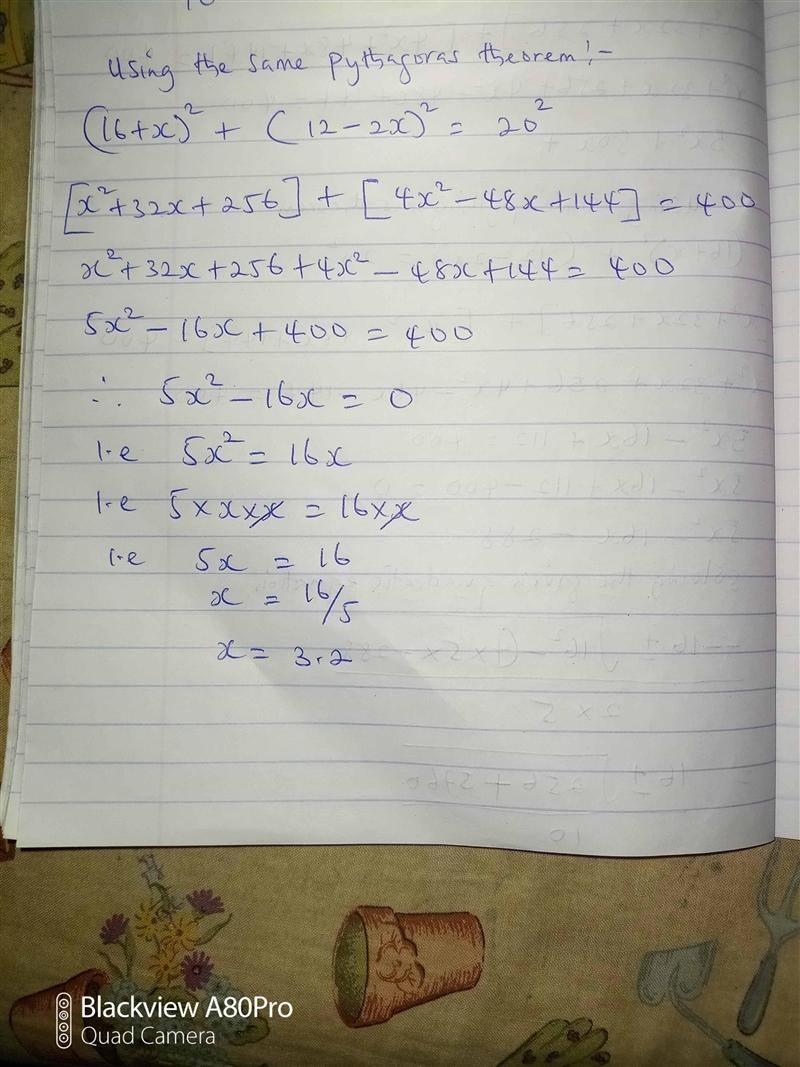 10
Using the same pythagoras theorem:-
(16+x)² + (12-2x)² = 20²
[x²+32x+256] + [4x²-48x+144] = 400
x²+32x+256+4x²-48x+144 = 400
5x²-16x+400 = 400
∴ 5x²-16x = 0
1.e 5x² = 16x
1.e 5×x×x = 16×x
1.e 5x = 16
x = 16/5
x = 3.2
Blackview A80Pro
Quad Camera